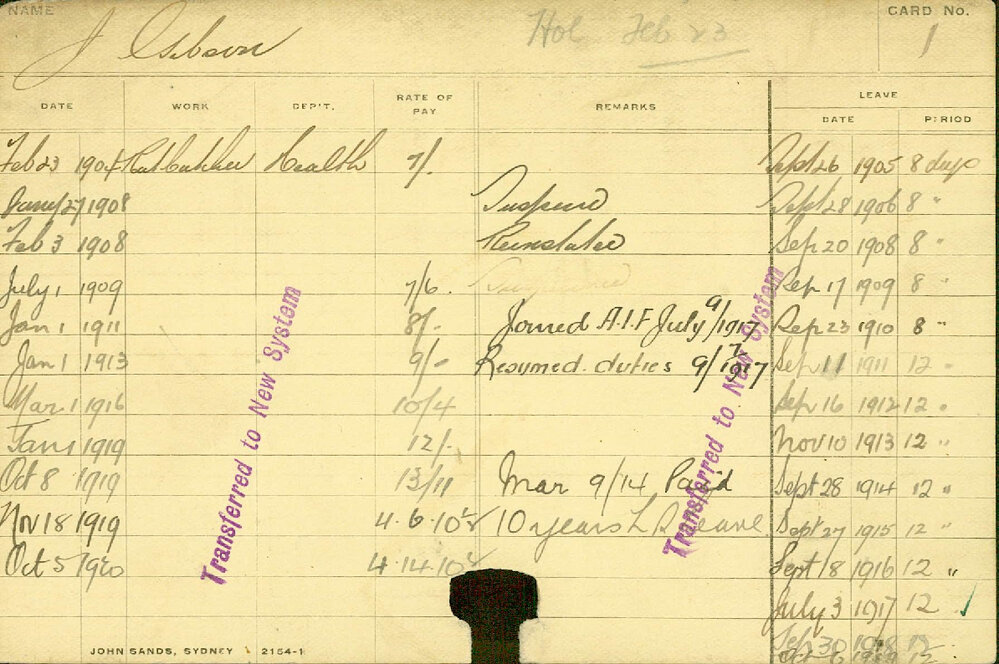 NAME
J Gibson
Hol Feb 23
CARD No.
1
DATE WORK DEP'T. RATE OF PAY REMARKS LEAVE
DATE PERIOD
Feb 23 1904 Ratcatcher Health 7/. Sept 26 1905 8 days
Jany 27 1908 Suspend Sept 28 1906 8 "
Feb 3 1908 Reinstated Sep 20 1908 8 "
July 1 1909 7/6. Sep 17 1909 8 "
Jan 1 1911 8/- Joined A.I.F July 9/1917 Sep 23 1910 8 "
Jan 1 1913 9/- Resumed duties 9/7/1917 Sep 11 1911 12 "
Mar 1 1916 10/4 Sep 16 1912 12 "
Jan 1 1919 12/- Nov 10 1913 12 "
Oct 8 1919 13/11 Mar 9/14 Paid Sept 28 1914 12 "
Nov 18 1919 4.6.10½ 10 years L S Leave Sept 27 1915 12 "
Oct 5 1920 4.14.10½ Sept 18 1916 12 "
July 3 1917 12 ✓
Sep 30 1918 12
Transferred to New System
Transferred to New System
JOHN SANDS, SYDNEY 2154-1